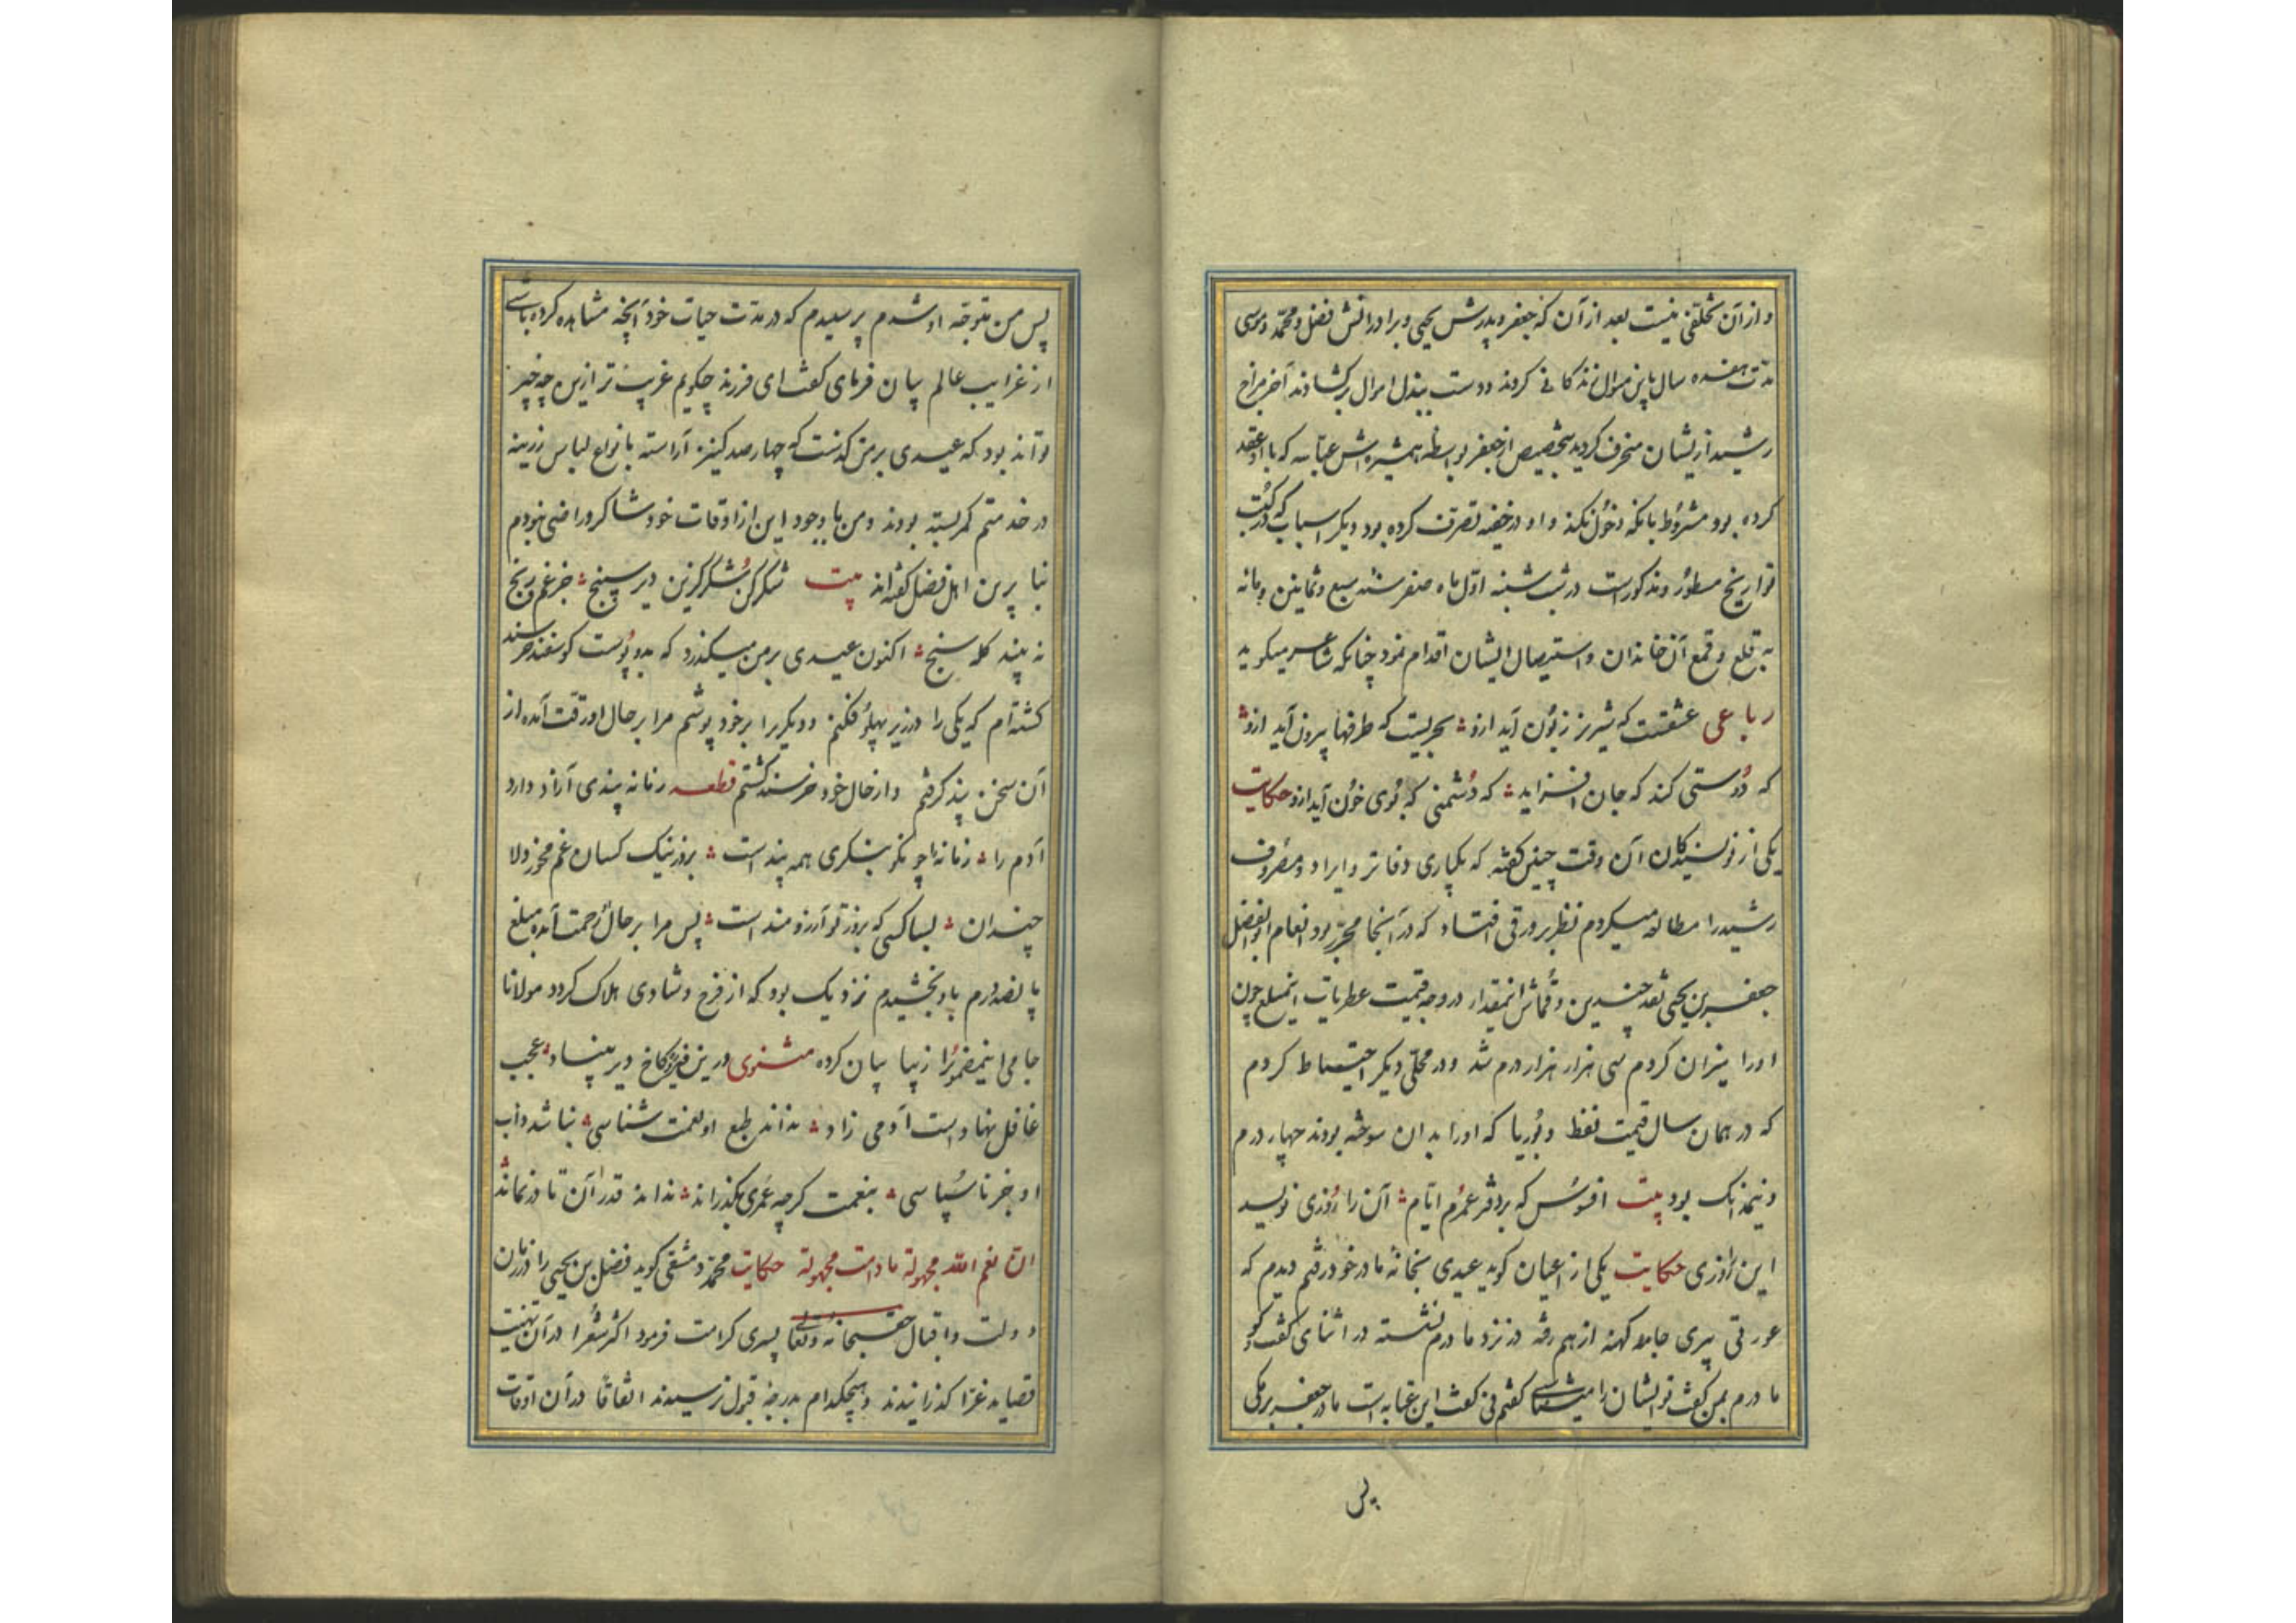 و از آن تخلفی نیست بعد از آن که جعفر و پدرش یحیی و برادرانش فضل و محمد و موسی
مدت هفده سال باین منوال زندکانی کردند و دست ببذل اموال برکشادند آخر مزاج
رشید از یشان منحرف کردید بتخصیص از جعفر بواسطه همشیره اش عباسه که با او عقد
کرده بود مشروط بانکه دخول نکند و او در خفیه تصرف کرده بود و دیکر اسباب که در کتب
تواریخ مسطور و مذکور است در شب شنبه اول ماه صفر سنه سبع و ثمانین و مائه
به قلع و قمع آن خاندان و استیصال ایشان اقدام نمود چنانکه شاعر میکوید
رباعی عشقست که شیر نر زبون آید ازو ؞ بحریست که طرفها بیرون آید ازو ؞
که دوستی کند که جان افزاید ؞ که دشمنی که بوی خون آید ازو حکایت
یکی از نویسندکان آن وقت چنین کفته که یکباری دفاتر و ایراد و مصروف
رشید را مطالعه میکردم نظر بر ورقی افتاد که در آنجا محرر بود انعام ابو الفضل
جعفر بن یحیی نقد چندین و قماش اینمقدار در وجه قیمت عطریات اینمبلغ چون
او را میزان کردم سی هزار هزار درم شد و در محلی دیکر احتیاط کردم
که در همان سال قیمت نفط و بوریا که او را بدان سوخته بودند چهار درم
و نیم دانک بود بیت افسوس که بر دفتر عمرم ایام ؞ آن را روزی نویسد
این را روزی حکایت یکی از اعیان کوید عیدی بخانه مادر خود رفتم دیدم که
عورتی پیری جامه کهنه از هم رفته در نزد مادرم نشسته در اثنای کفت و کو
مادرم بمن کفت تو ایشان را میشناسی کفتم نی کفت این عتابه است مادر جعفر برمکی
پس
پس من متوجه او شدم پرسیدم که در مدت حیات خود آنچه مشاهده کرده باشی
از غرایب عالم بیان فرمای کفت ای فرزند چکویم غریب تر ازین چه چیز
تواند بود که عیدی بر من کذشت که چهار صد کنیز آراسته بانواع لباس زرینه
در خدمتم کمر بسته بودند و من با وجود این از اوقات خود شاکر و راضی نبودم
بنا برین اهل فضل کفته اند بیت شکر کن شکر کزین دیر سپنج ؞ جز غم و رنج
نه بیند کله سنج ؞ اکنون عیدی بر من میکذرد که بدو پوست کوسفند خرسند
کشته ام که یکی را در زیر پهلو فکنم و دیکر را بر خود پوشم مرا بر حال او رقت آمده از
آن سخن پند کرفتم و از حال خود خرسند کشتم قطعه زمانه پندی آزاد وارد
آدم را ؞ زمانه را چو نکو بنکری همه پند است ؞ بروز نیک کسان غم مخور ولا
چندان ؞ بسا کسی که بروز تو آرزومند است ؞ پس مرا بر حال او رحمت آمده مبلغ
پانصد درم باو بخشیدم نزدیک بود که از فرح و شادی هلاک کردد مولانا
جامی اینمضمونرا زیبا بیان کرده مثنوی درین فیروزه کاخ دیر بنیاد ؞ عجب
غافل نهاد است آدمی زاد ؞ نداند طبع او نعمت شناسی ؞ نباشد دأب
او جز ناسپاسی ؞ بنعمت کرچه عمری بکذراند ؞ نداند قدر آن تا در نماند ؞
ان نعم الله مجهولة ما دامت مجهولة حکایت محمد دمشقی کوید فضل بن یحیی را در زمان
دولت و اقبال حق سبحانه و تعالی پسری کرامت فرمود اکثر شعرا در آن تهنیت
قصاید غرا کذرانیدند و هیچکدام بدرجه قبول نرسیدند اتفاقا در آن اوقات